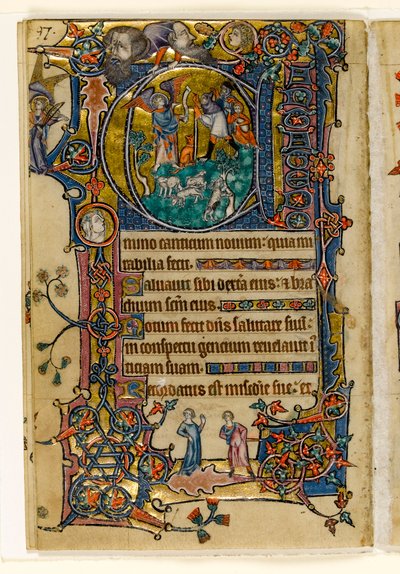 97.
C
mino canticum nouum: quia mi
rabilia fecit.
Saluauit sibi dextra eius: & bra
chium scm eius.
Notum fecit dns salutare suu:
in conspectu gencium reuelauit i
ticiam suam.
Recordatus est misedie sue: et